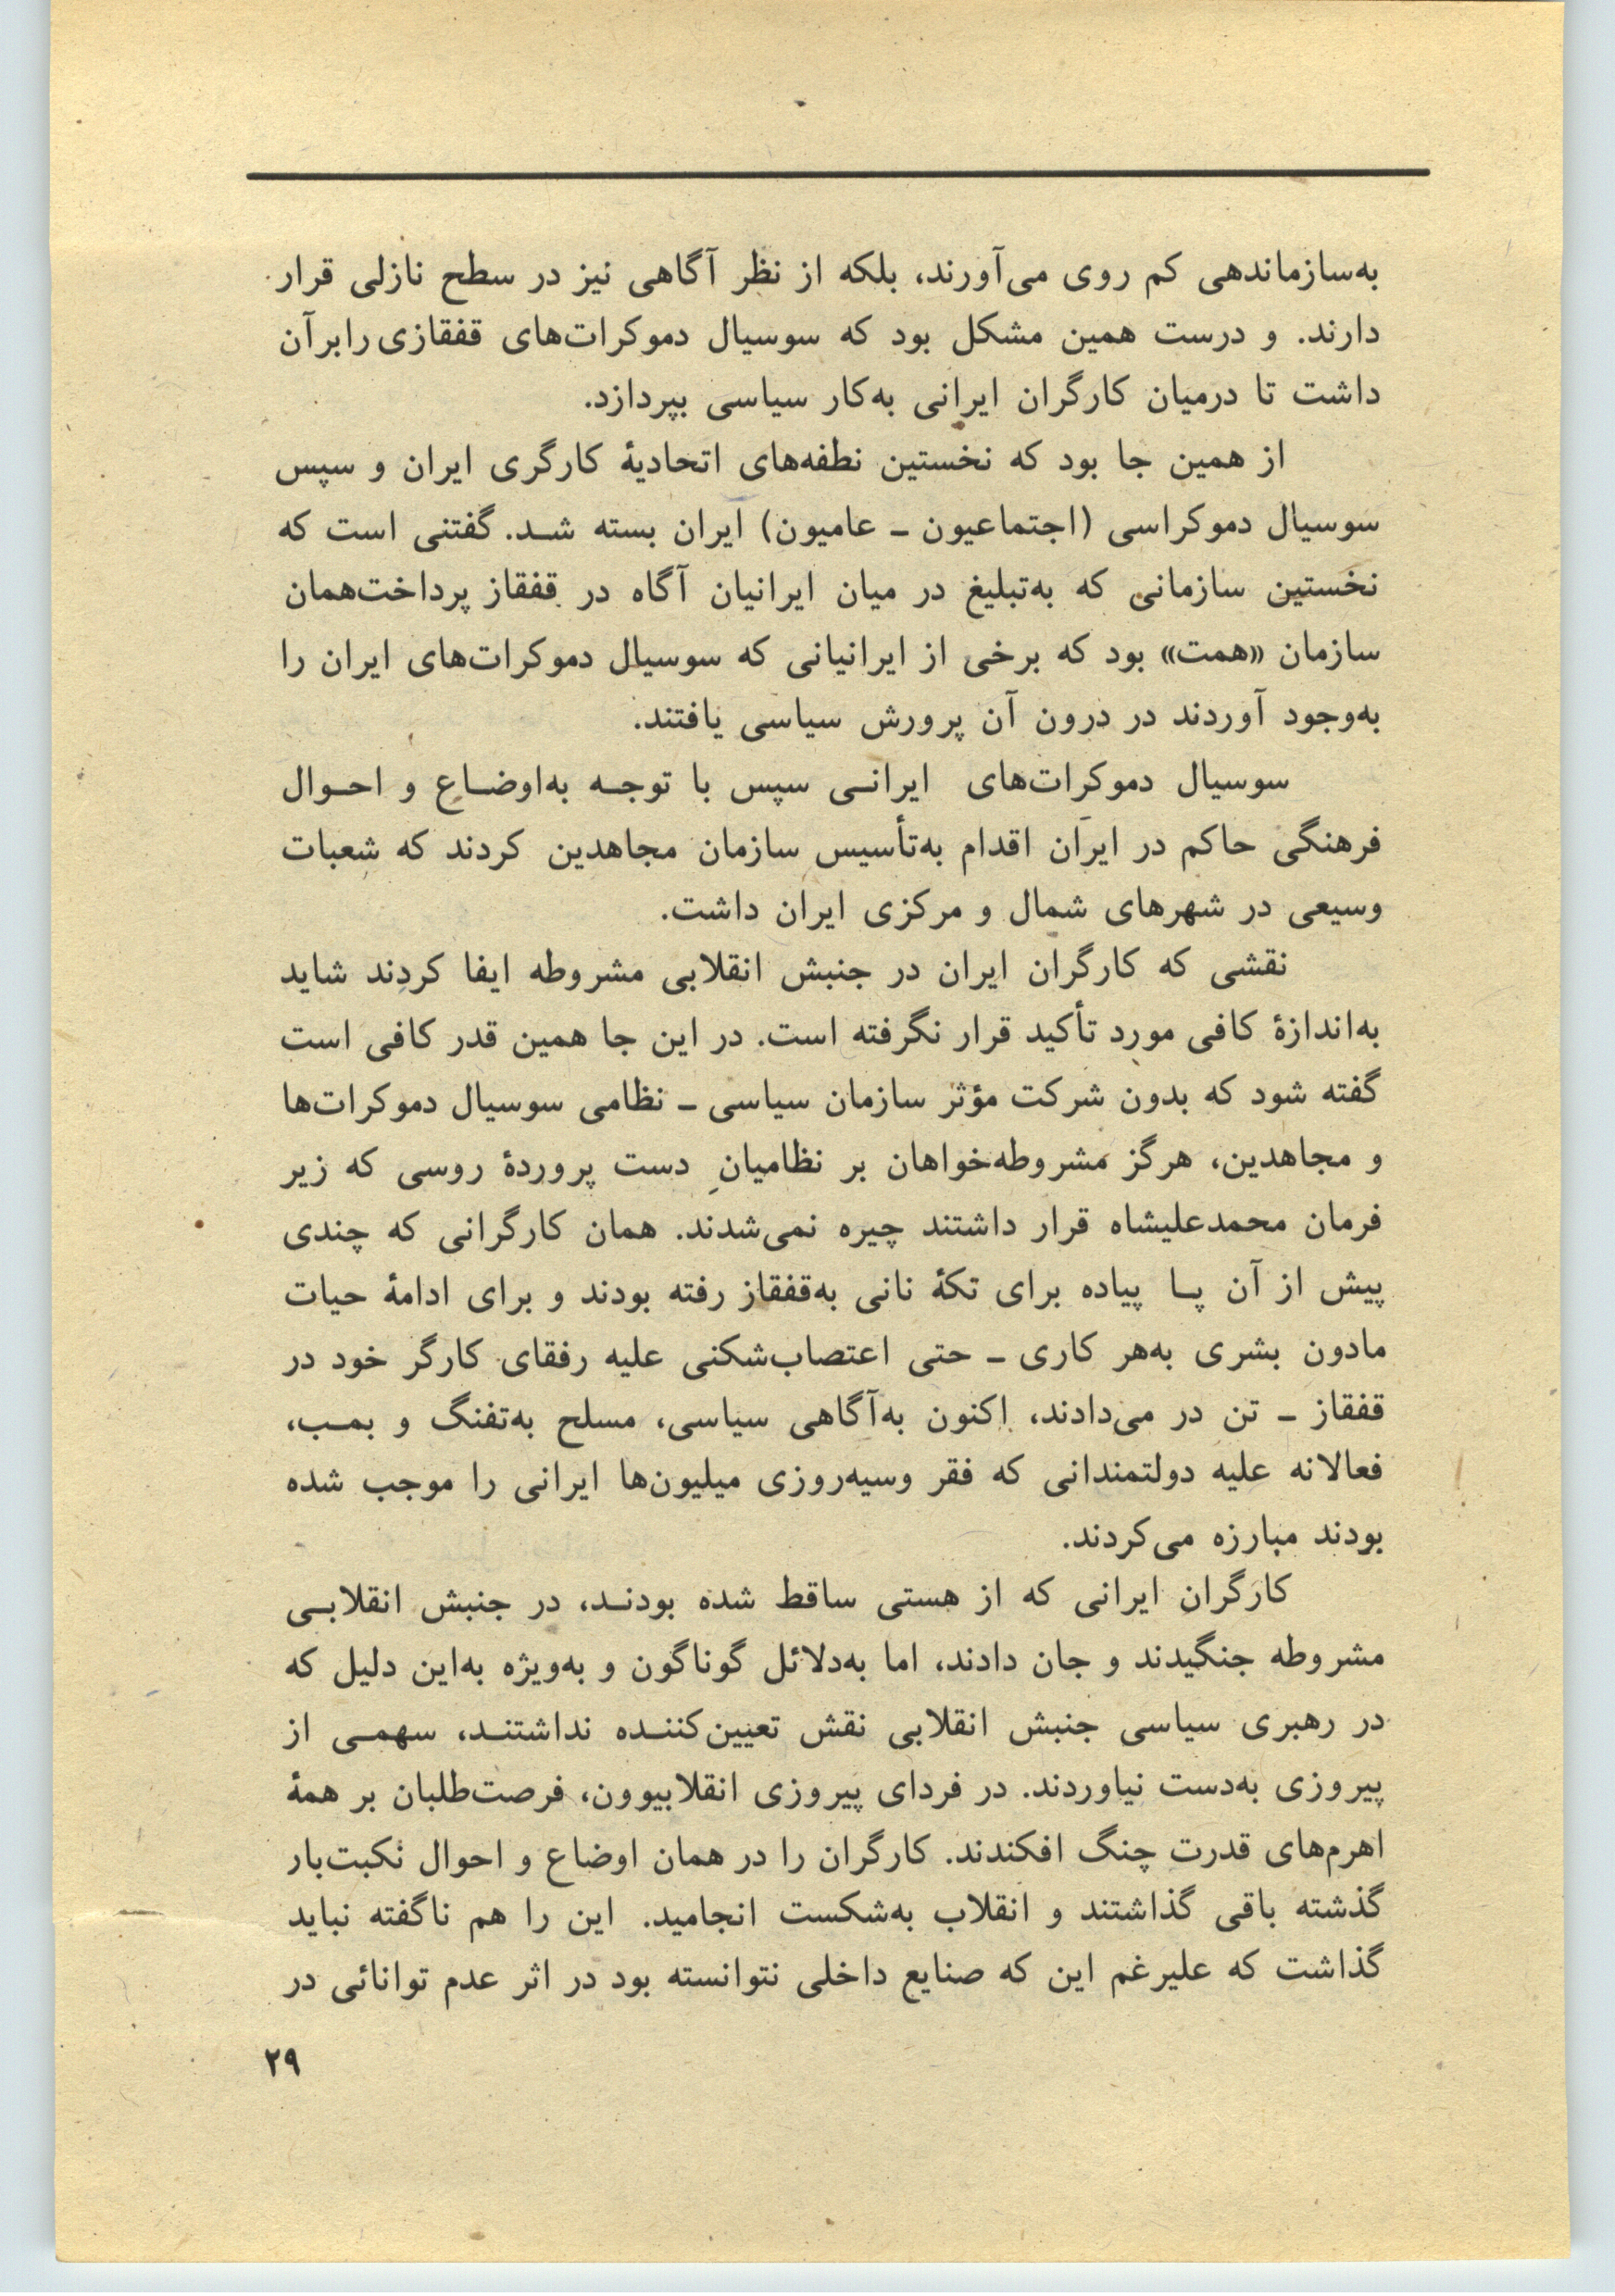 به‌سازماندهی کم روی می‌آورند، بلکه از نظر آگاهی نیز در سطح نازلی قرار
دارند. و درست همین مشکل بود که سوسیال دموکرات‌های قفقازی را برآن
داشت تا درمیان کارگران ایرانی به‌کار سیاسی بپردازد.
از همین جا بود که نخستین نطفه‌های اتحادیهٔ کارگری ایران و سپس
سوسیال دموکراسی (اجتماعیون ـ عامیون) ایران بسته شـد. گفتنی است که
نخستین سازمانی که به‌تبلیغ در میان ایرانیان آگاه در قفقاز پرداخت‌همان
سازمان «همت» بود که برخی از ایرانیانی که سوسیال دموکرات‌های ایران را
به‌وجود آوردند در درون آن پرورش سیاسی یافتند.
سوسیال دموکرات‌های ایرانـی سپس با توجـه به‌اوضـاع و احـوال
فرهنگی حاکم در ایران اقدام به‌تأسیس سازمان مجاهدین کردند که شعبات
وسیعی در شهرهای شمال و مرکزی ایران داشت.
نقشی که کارگران ایران در جنبش انقلابی مشروطه ایفا کردند شاید
به‌اندازهٔ کافی مورد تأکید قرار نگرفته است. در این جا همین قدر کافی است
گفته شود که بدون شرکت مؤثر سازمان سیاسی ـ نظامی سوسیال دموکرات‌ها
و مجاهدین، هرگز مشروطه‌خواهان بر نظامیانِ دست پروردهٔ روسی که زیر
فرمان محمدعلیشاه قرار داشتند چیره نمی‌شدند. همان کارگرانی که چندی
پیش از آن پـا پیاده برای تکهٔ نانی به‌قفقاز رفته بودند و برای ادامهٔ حیات
مادون بشری به‌هر کاری ـ حتی اعتصاب‌شکنی علیه رفقای کارگر خود در
قفقاز ـ تن در می‌دادند، اکنون به‌آگاهی سیاسی، مسلح به‌تفنگ و بمـب،
فعالانه علیه دولتمندانی که فقر وسیه‌روزی میلیون‌ها ایرانی را موجب شده
بودند مبارزه می‌کردند.
کارگران ایرانی که از هستی ساقط شده بودنـد، در جنبش انقلابـی
مشروطه جنگیدند و جان دادند، اما به‌دلائل گوناگون و به‌ویژه به‌این دلیل که
در رهبری سیاسی جنبش انقلابی نقش تعیین‌کننـده نداشتنـد، سهمـی از
پیروزی به‌دست نیاوردند. در فردای پیروزی انقلابیوون، فرصت‌طلبان بر همهٔ
اهرم‌های قدرت چنگ افکندند. کارگران را در همان اوضاع و احوال نکبت‌بار
گذشته باقی گذاشتند و انقلاب به‌شکست انجامید. این را هم ناگفته نباید
گذاشت که علیرغم این که صنایع داخلی نتوانسته بود در اثر عدم توانائی در
۲۹